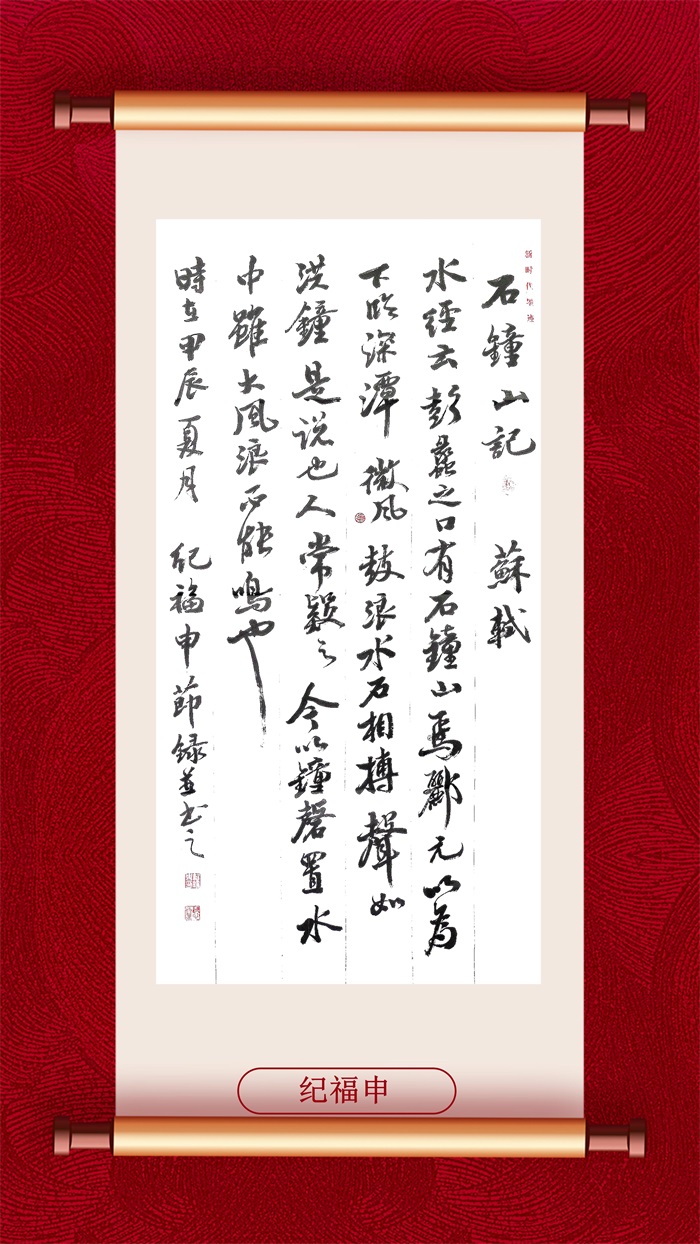 石鐘山記 蘇軾
水經云彭蠡之口有石鐘山焉酈元以為
下臨深潭微風鼓浪水石相搏聲如
洪鐘是说也人常疑之今以鐘磬置水
中雖大風浪不能鳴也
時在甲辰夏月 纪福申節録並书之
纪福申